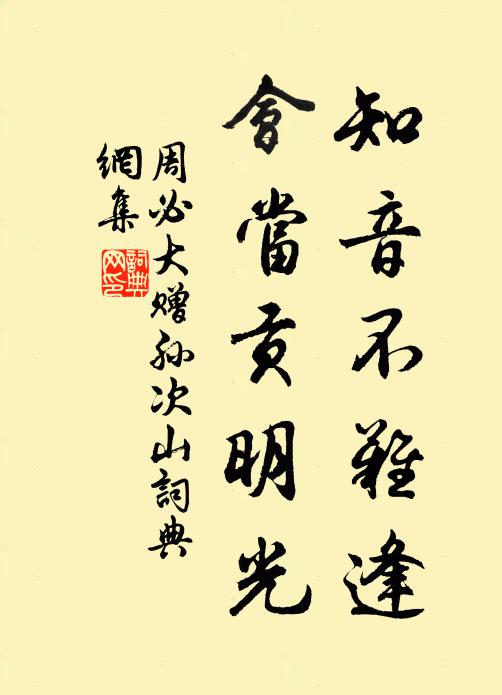 知音不難逢
會當貢明光
周必大贈孙次山詞典
網集
詞典
网印